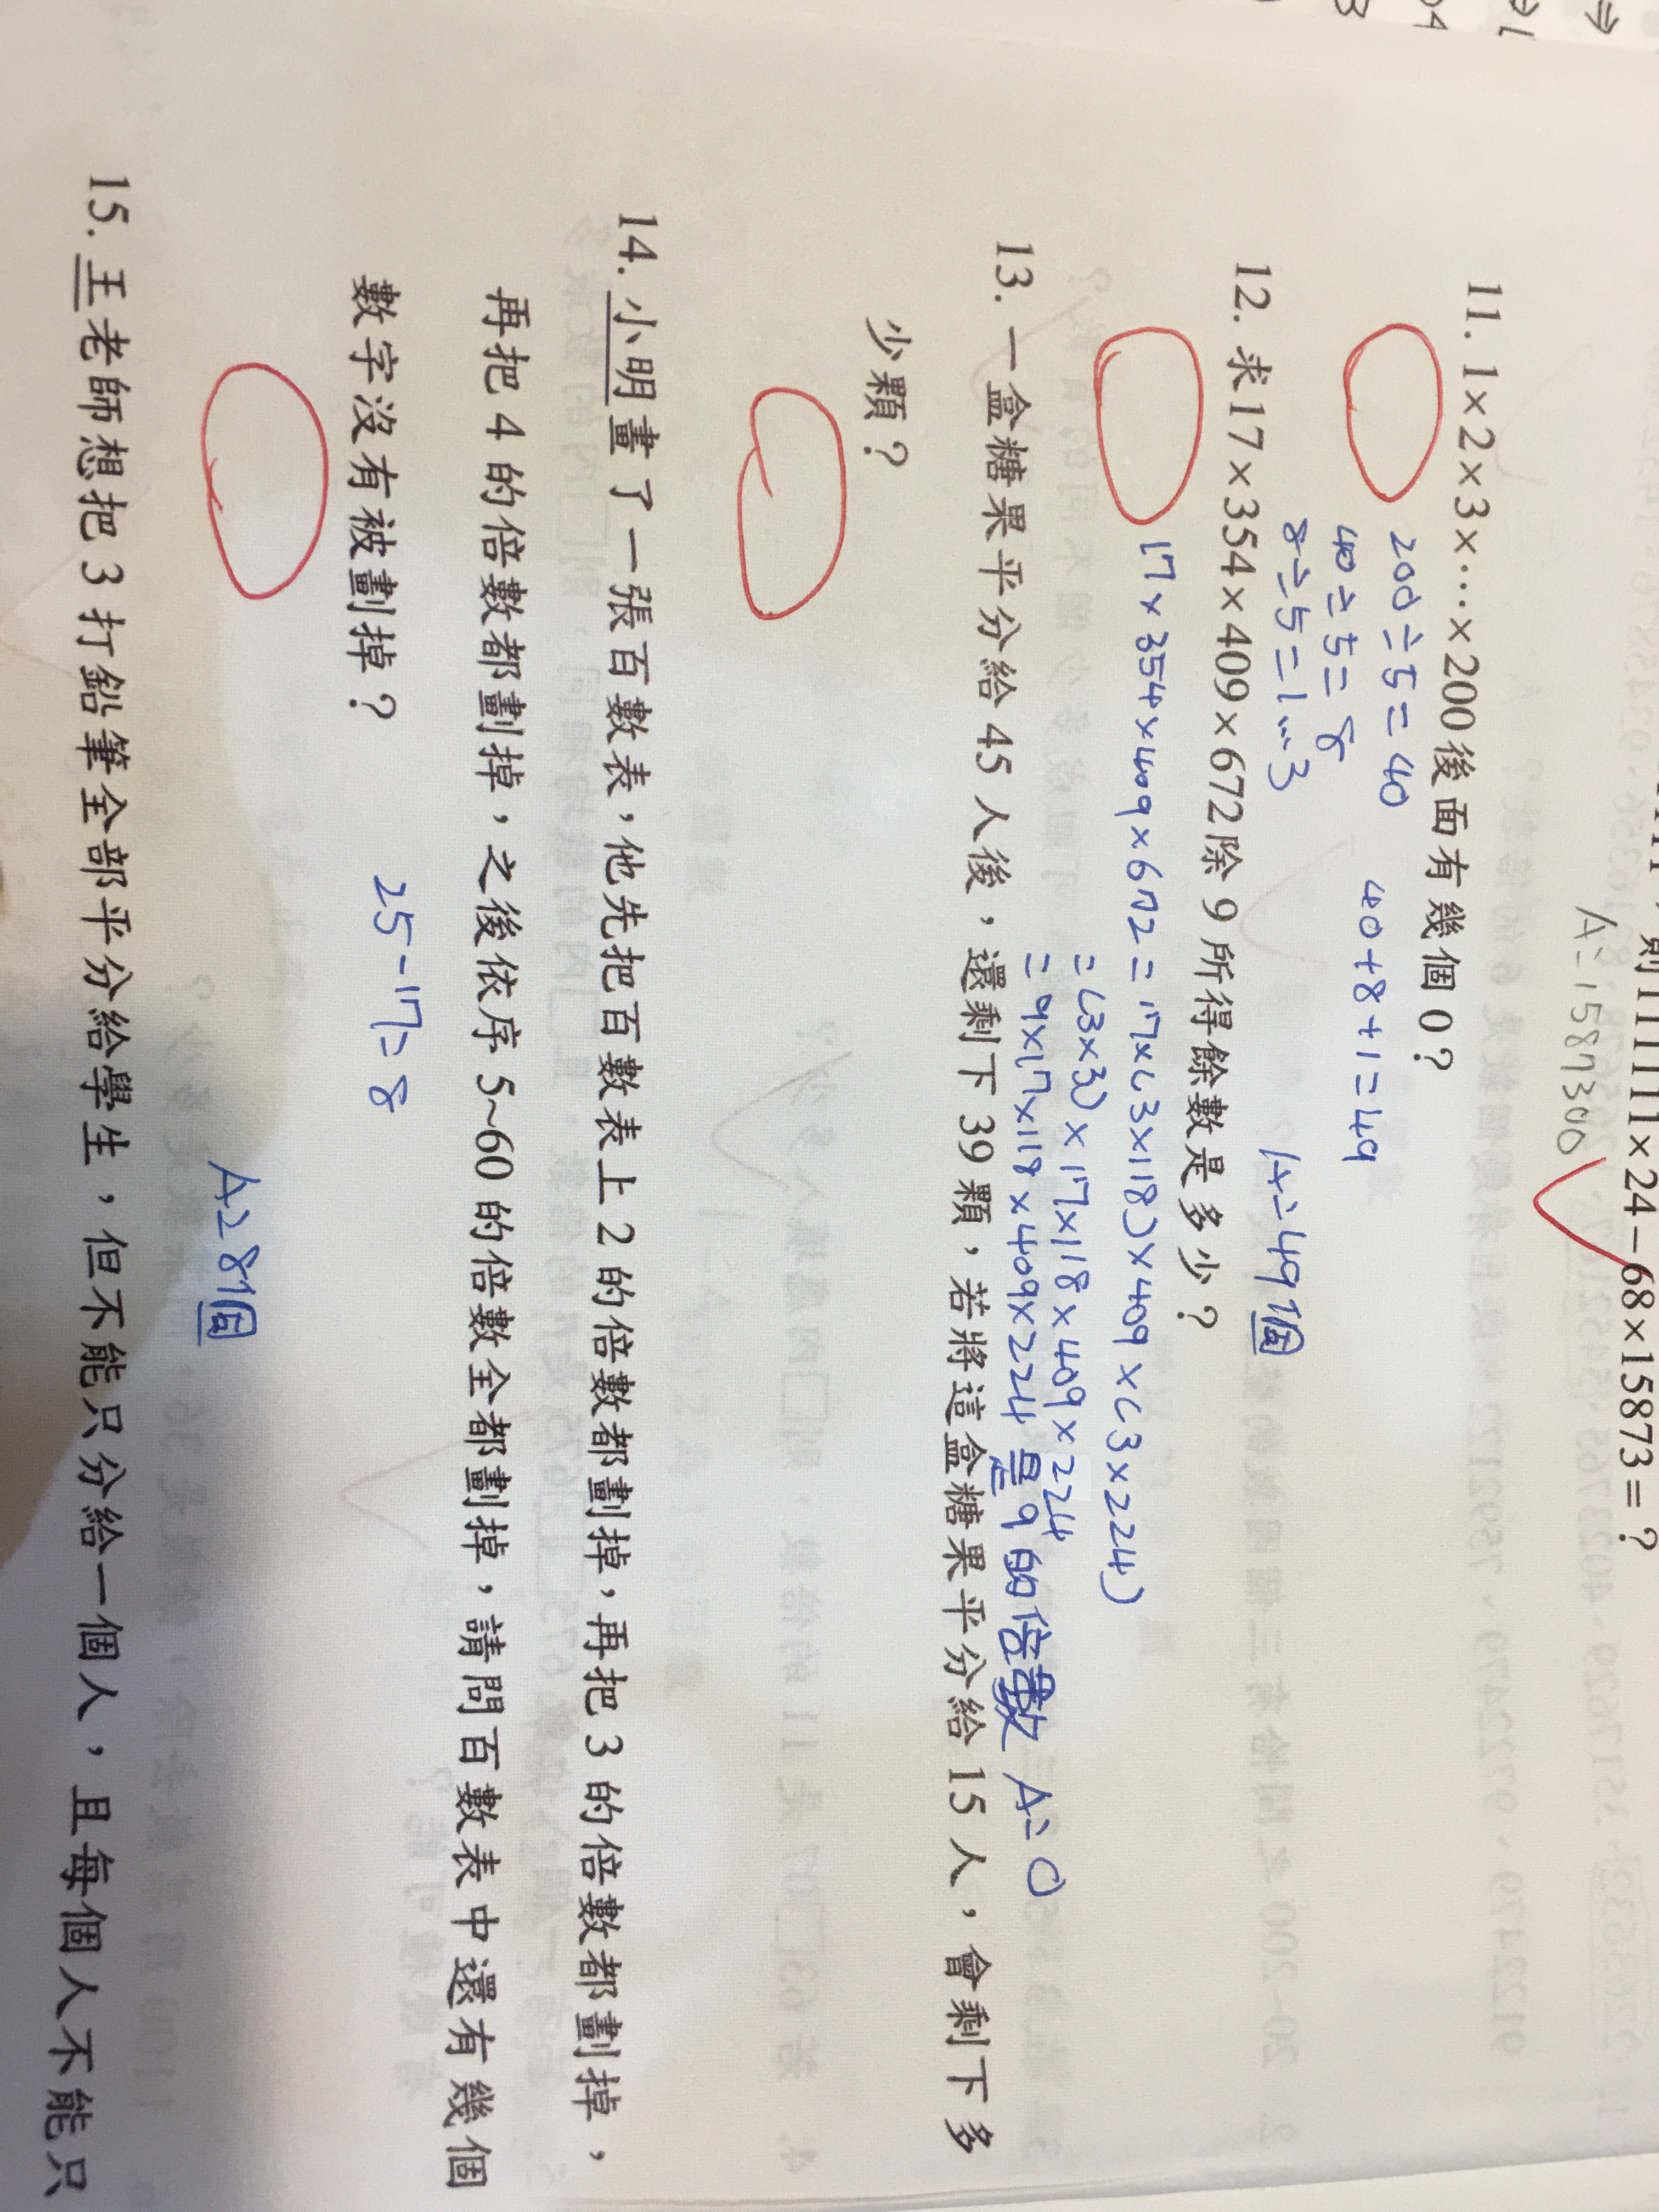 則111111×24－68×15873=？
A：1587300
11. 1×2×3×…×200後面有幾個0？
200÷5=40
40÷5=8
8÷5=1…3
40+8+1=49
A：49個
12. 求17×354×409×672除9所得餘數是多少？
17×354×409×672=17×(3×118)×409×(3×224)
=(3×3)×17×118×409×224
=9×17×118×409×224是9的倍數 A：0
13. 一盒糖果平分給45人後，還剩下39顆，若將這盒糖果平分給15人，會剩下多
少顆？
14. 小明畫了一張百數表，他先把百數表上2的倍數都劃掉，再把3的倍數都劃掉，
再把4的倍數都劃掉，之後依序5~60的倍數全都劃掉，請問百數表中還有幾個
數字沒有被劃掉？
25-17=8
A：8個
15. 王老師想把3打鉛筆全部平分給學生，但不能只分給一個人，且每個人不能只